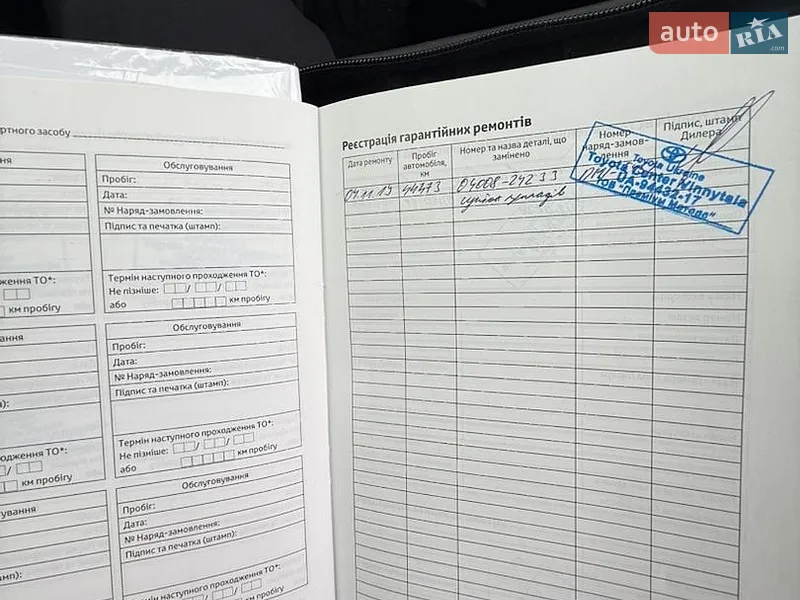 auto RIA .com
ртного засобу
ня
Обслуговування
Пробіг:
Дата:
№ Наряд-замовлення:
Підпис та печатка (штамп):
ження ТО*:
км пробігу
Термін наступного проходження ТО*:
Не пізніше: / /
або км пробігу
ання
Обслуговування
Пробіг:
Дата:
№ Наряд-замовлення:
Підпис та печатка (штамп):
):
ження ТО*:
км пробігу
Термін наступного проходження ТО*:
Не пізніше: / /
або км пробігу
ування
Обслуговування
Пробіг:
Дата:
№ Наряд-замовлення:
Підпис та печатка (штамп):
мп):
ження ТО*:
Термін наступного проходження ТО*:
Реєстрація гарантійних ремонтів
Дата ремонту
Пробіг автомобіля, км
Номер та назва деталі, що замінено
Номер наряд-замовлення
Підпис, штамп Дилера
04.11.19 44473 04008-24233
Toyota Ukraine
Toyota Center Vinnytsia
ТОВ "Преміум Моторс"